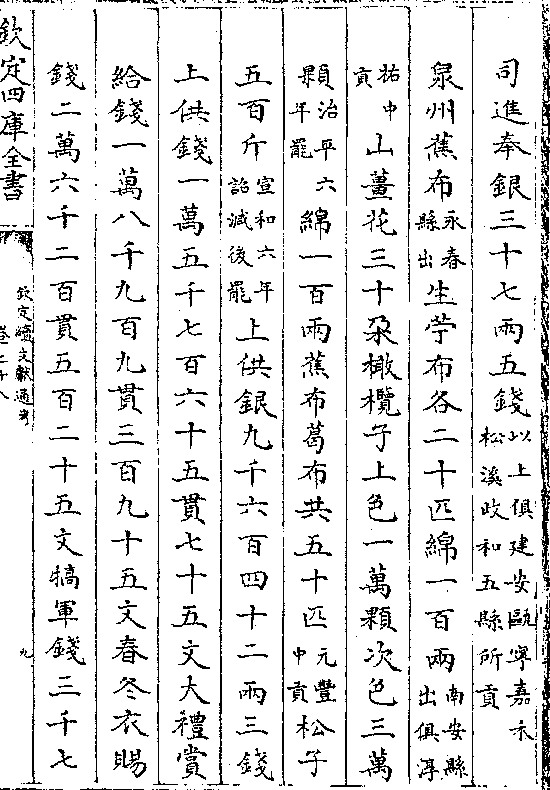 司進奉銀三十七兩五錢以上俱建安甌寧嘉禾松溪政和五縣所貢
泉州蕉布永春縣出生苧布各二十匹綿一百兩南安縣出俱淳
祐中貢山薑花三十朶橄欖子上色一萬顆次色三萬
顆治平六年罷綿一百兩蕉布葛布共五十匹元豐中貢松子
五百斤宣和六年詔減後罷上供銀九千六百四十二兩三錢
上供錢一萬五千七百六十五貫七十五文大禮賞
給錢一萬八千九百九貫三百九十五文春冬衣賜
錢二萬六千二百貫五百二十五文犒軍錢三千七
欽定四庫全書
欽定續文獻通考
卷二十八
九